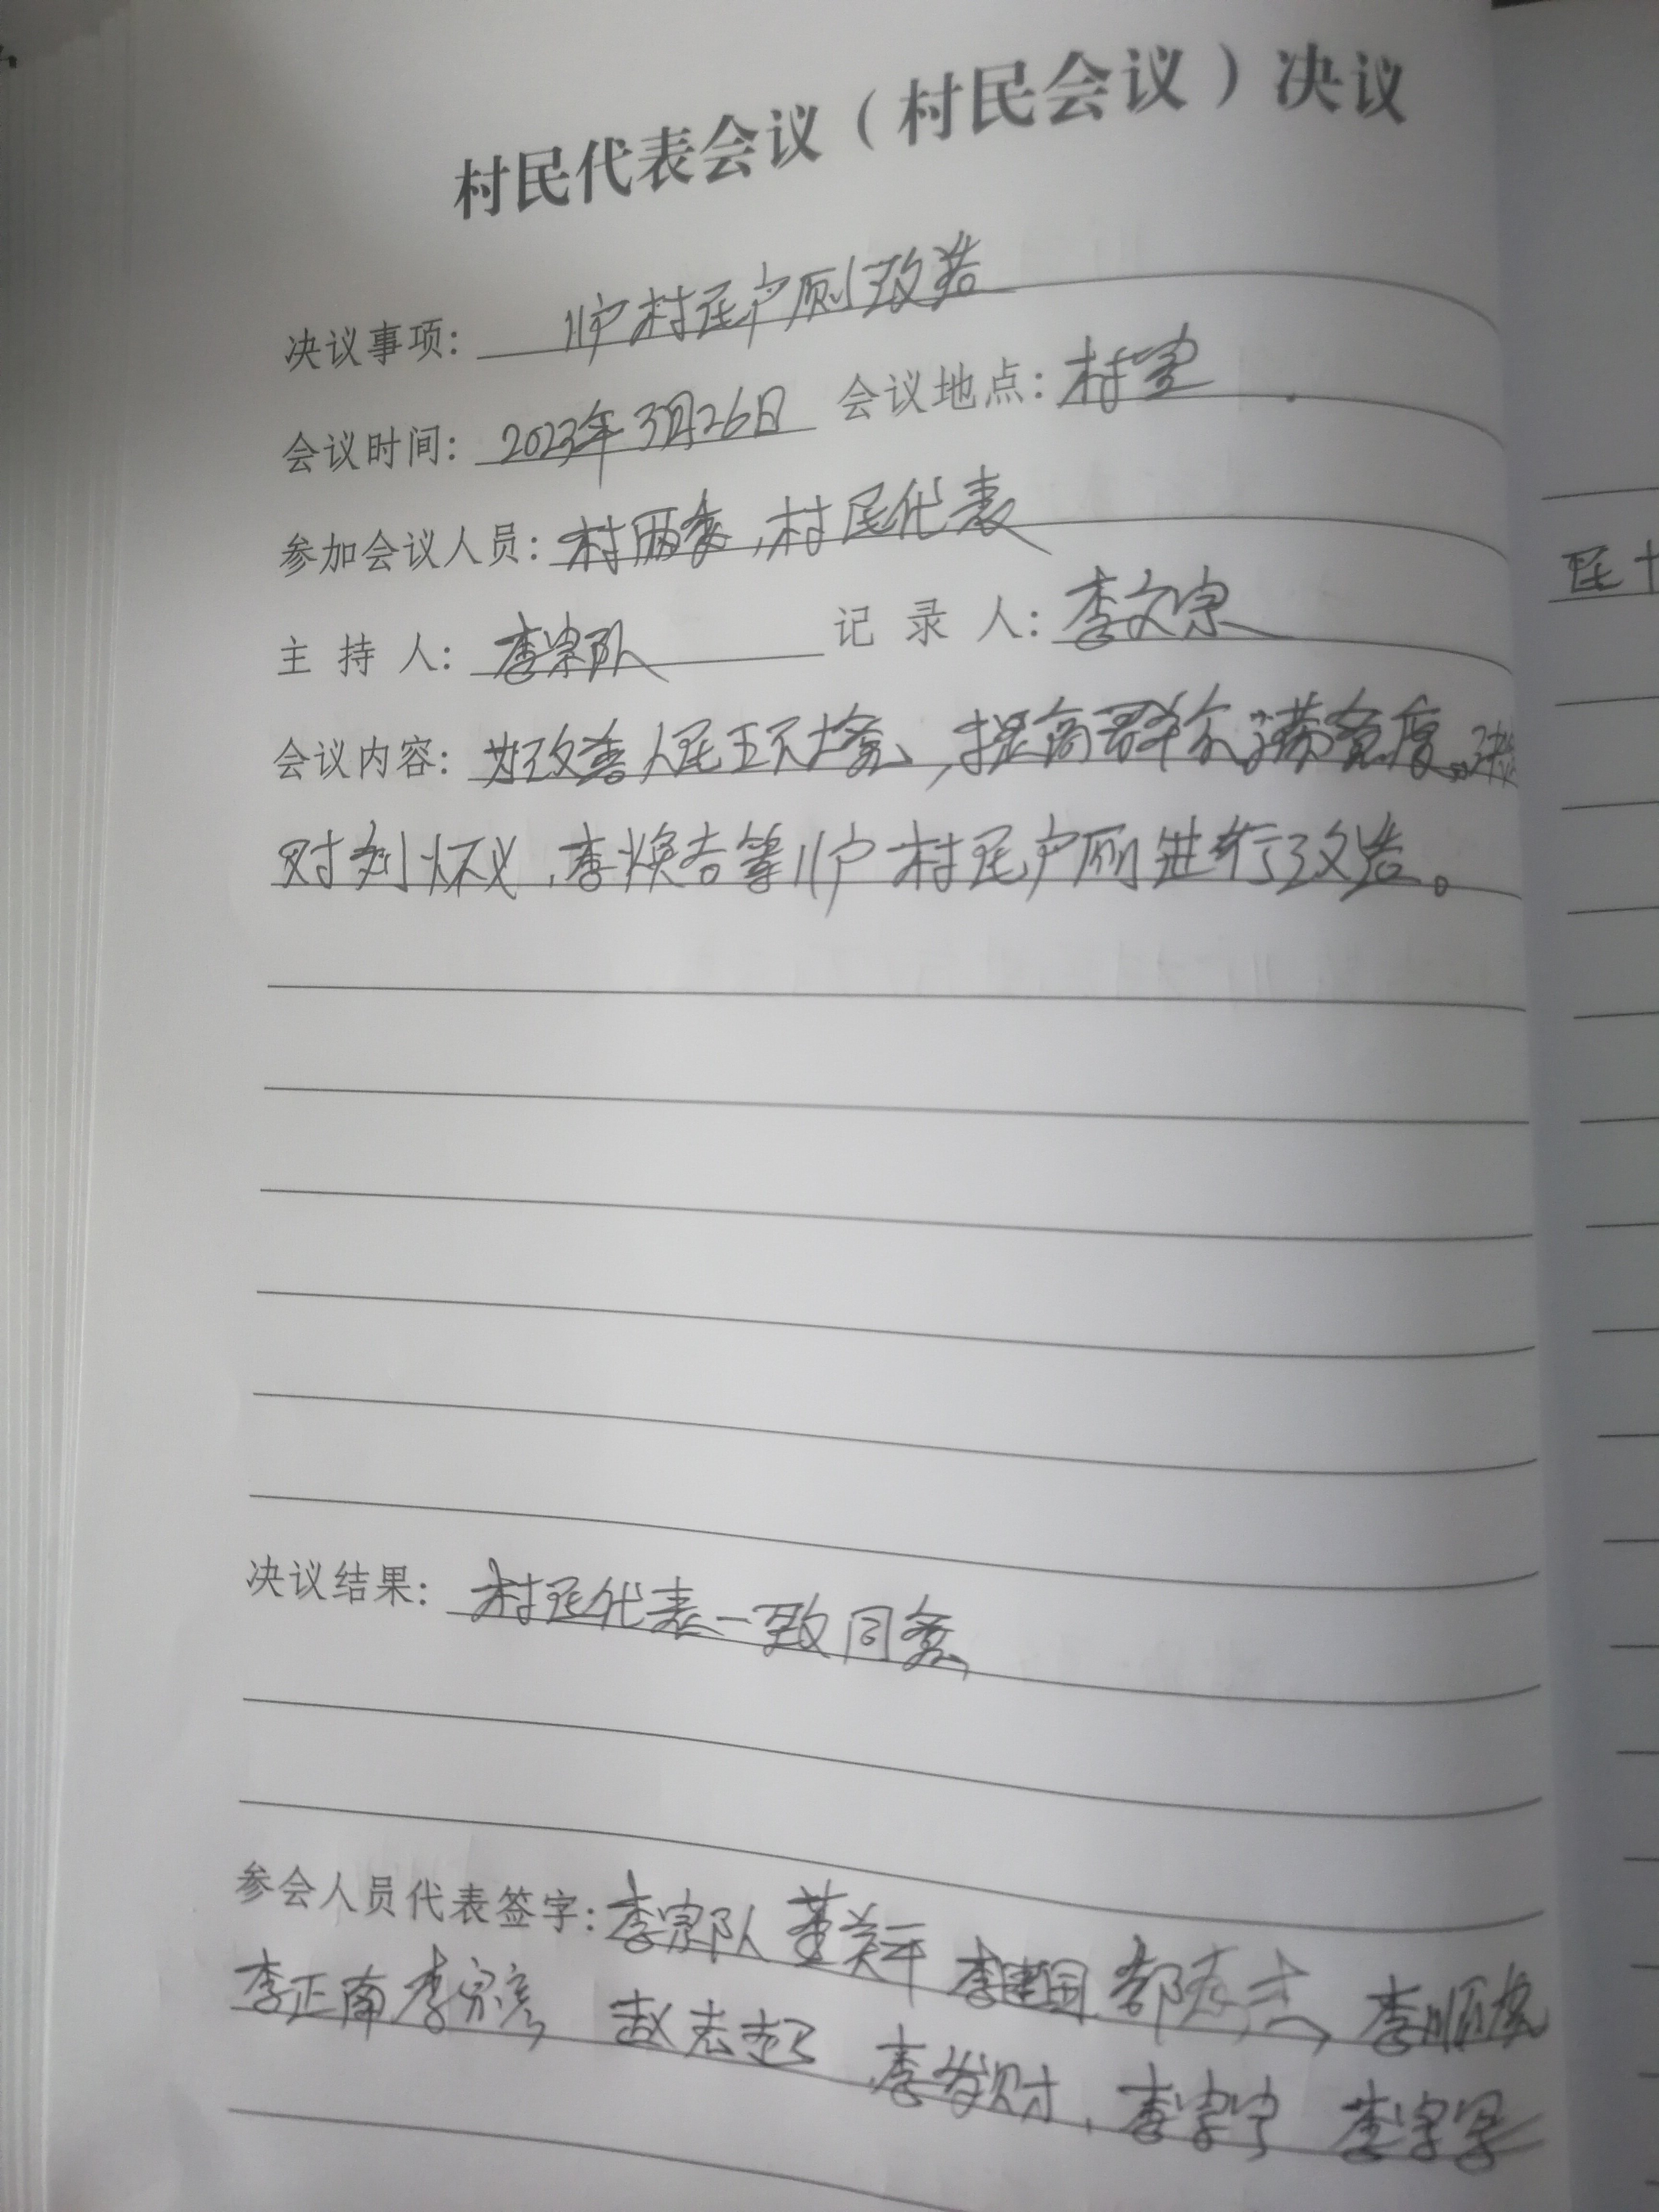 村民代表会议（村民会议）决议
决议事项: 11户村民户厕改造
会议时间: 2023年3月26日 会议地点: 村室
参加会议人员: 村两委,村民代表
主持人: 李宗队 记录人: 李文宗
会议内容: 为改善人民环境,提高群众满意度。决定
对刘怀义,李焕吉等11户村民户厕进行改造。
决议结果: 村民代表一致同意
参会人员代表签字: 李宗队 董美平 李建国 李顺
李正南 李宗彦 赵志起 李发财 李宗宁
民